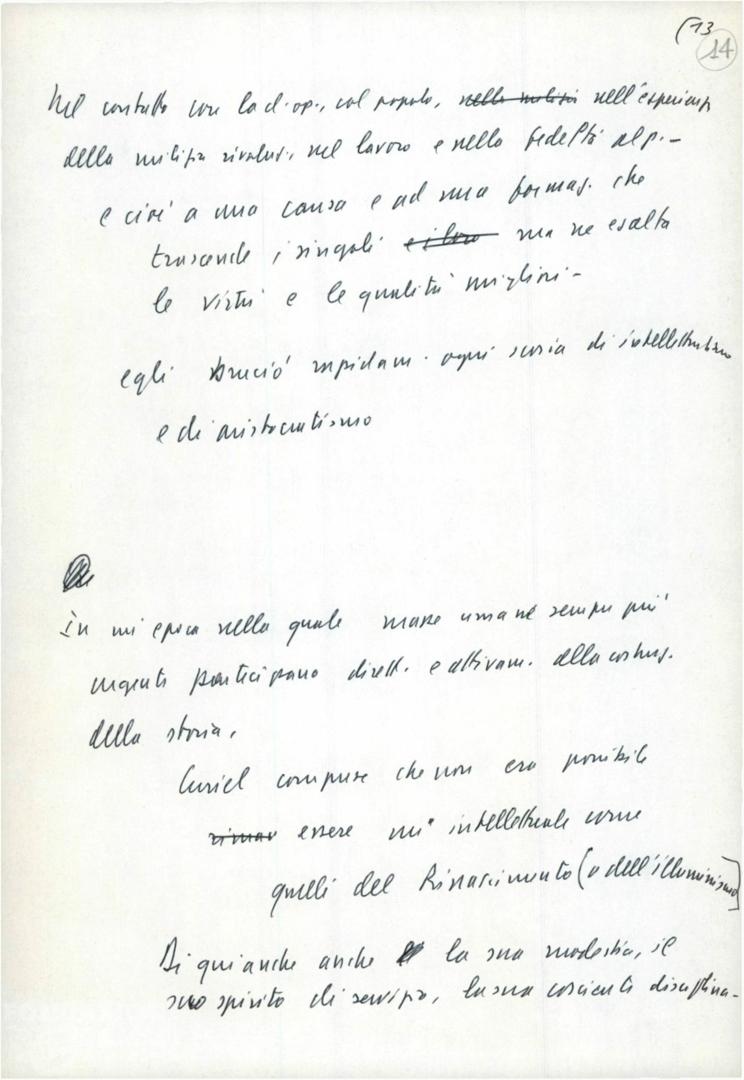 (13
14
Nel contatto con la cl. op., col popolo, nelle milizi nell'esperienza
della milizia rivoluz., nel lavoro e nella fedeltà al p. –
e cioè a una causa e ad una formaz. che
trascende i singoli e i loro ma ne esalta
le virtù e le qualità migliori –
egli bruciò rapidam. ogni scoria di intellettualismo
e di aristocratismo
In un'epoca nella quale masse umane sempre più
ingenti partecipano dirett. e attivam. alla costruz.
della storia,
Curiel comprese che non era possibile
rimav essere un intellettuale come
quelli del Rinascimento (o dell'illuminismo)
Di qui anche anche la sua modestia, il
suo spirito di servizio, la sua cosciente disciplina –